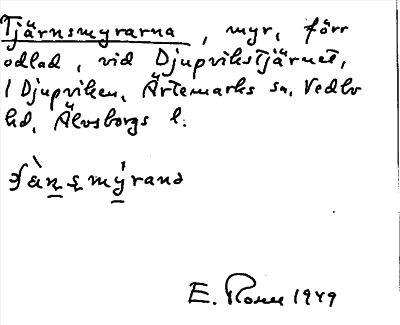 Tjärnsmyrarna, myr, förr
odlad, vid Djupvikstjärnet,
i Djupviken, Ärtemarks sn, Vedbo
hd, Älvsborgs l.
E. Rosen 1949